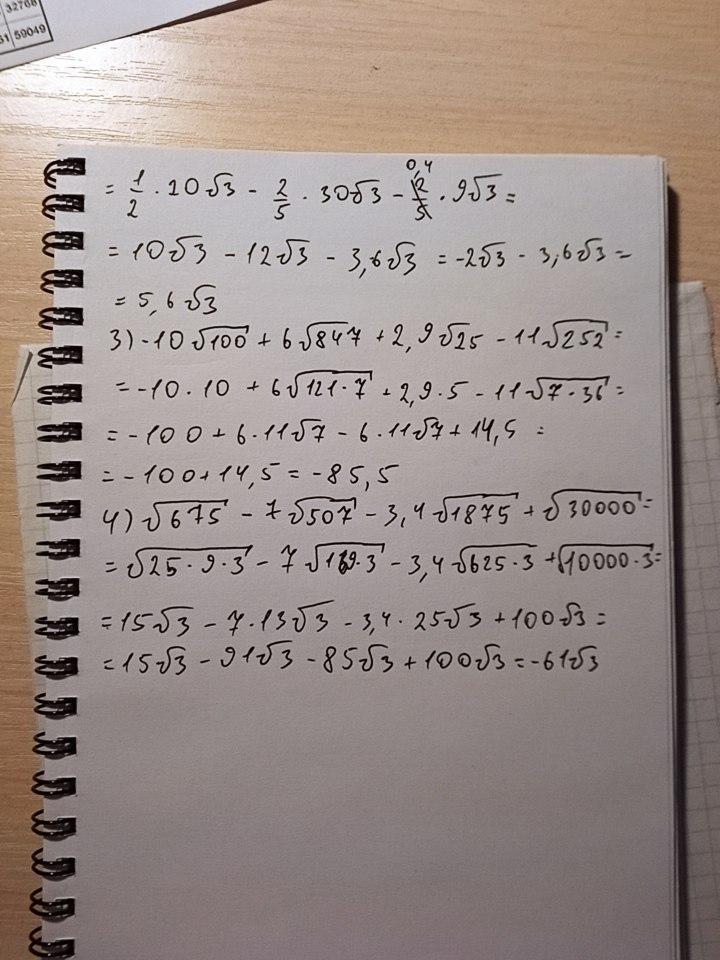 32768
59049
= 1/2 · 20√3 - 2/5 · 30√3 - 2/5 · 9√3 =
0,4
= 10√3 - 12√3 - 3,6√3 = -2√3 - 3,6√3 =
= 5,6√3
3) -10√100 + 6√847 + 2,9√25 - 11√252 =
= -10·10 + 6√121·7 + 2,9·5 - 11√7·36 =
= -100 + 6·11√7 - 6·11√7 + 14,5 =
= -100+14,5 = -85,5
4) √675 - 7√507 - 3,4√1875 + √30000 =
= √25·9·3 - 7√169·3 - 3,4√625·3 + √10000·3 =
= 15√3 - 7·13√3 - 3,4·25√3 + 100√3 =
= 15√3 - 91√3 - 85√3 + 100√3 = -61√3